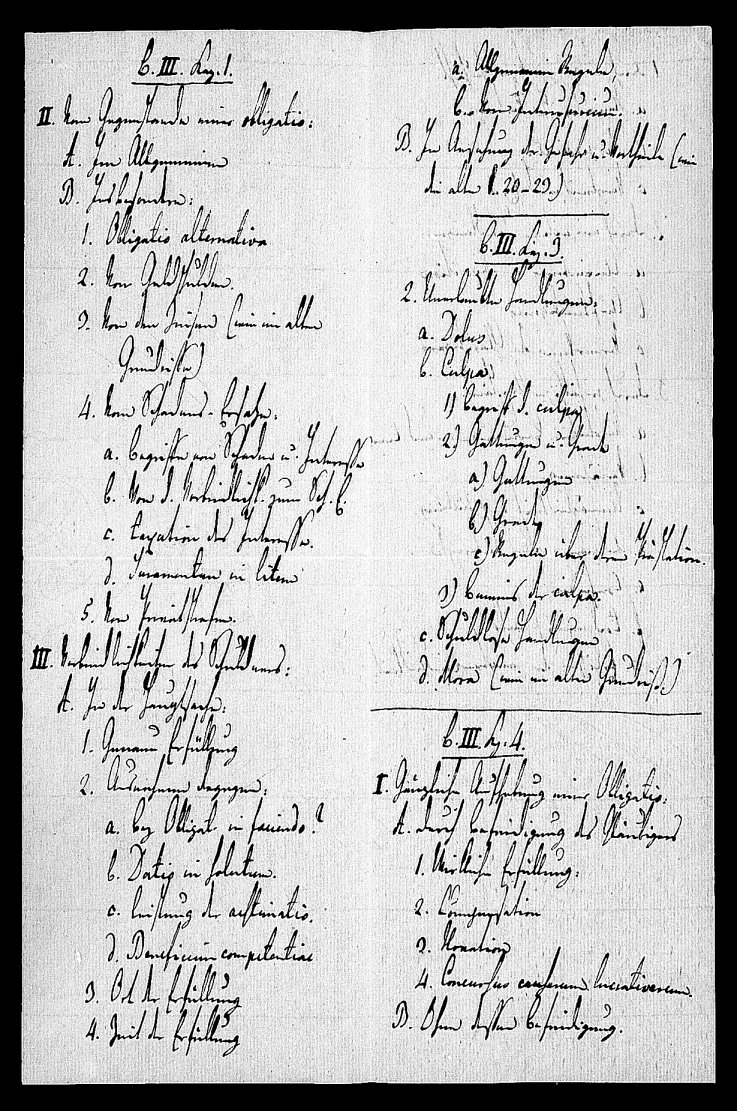 C. III. Lez. 1.
II. Vom Gegenstande einer obligatio:
A. Im Allgemeinen
B. Insbesondere:
1. Obligatio alternativa
2. Von Geldschulden.
3. Von den Zinsen (wie im alten
Grundrisse)
4. Vom Schadens-Ersatze:
a. Begriffe von Schaden u. Interesse
b. Von d. Verbindlichk. zum Sch. E.
c. taxation des Interesse.
d. Juramentum in litem
5. Von Privatstrafen.
III. Verbindlichkeiten des Schuldners:
A. In der Hauptsache:
1. Genaue Erfüllung
2. Ausnahmen dagegen:
a. bey Obligat. in faciendo?
b. Datio in solutum.
c. Leistung der aestimatio.
d. Beneficium competentiae
3. Ort der Erfüllung
4. Zeit der Erfüllung
a. Allgemeine Regeln,
b. Vom Interusurium.
B. In Ansehung der Gefahr u. Vortheile (wie
die alten §. 20-29.)
C. III. Lez. 3.
2. Unerlaubte Handlungen:
a. Dolus
b. Culpa
1) Begriff d. culpa
2) Gattungen u. Grade
a) Gattungen
b) Grade
c) Regeln über deren Prästation.
3) Beweis der culpa.
c. Schuldlose Handlungen
d. Mora (wie im alten Grundriß.)
C. III. Lez. 4.
I. Gänzliche Aufhebung einer Obligatio:
A. durch Befriedigung des Gläubigers
1. Wirkliche Erfüllung:
2. Compensation
3. Novation
4. Concursus causarum lucrativarum.
B. Ohne dessen Befriedigung.